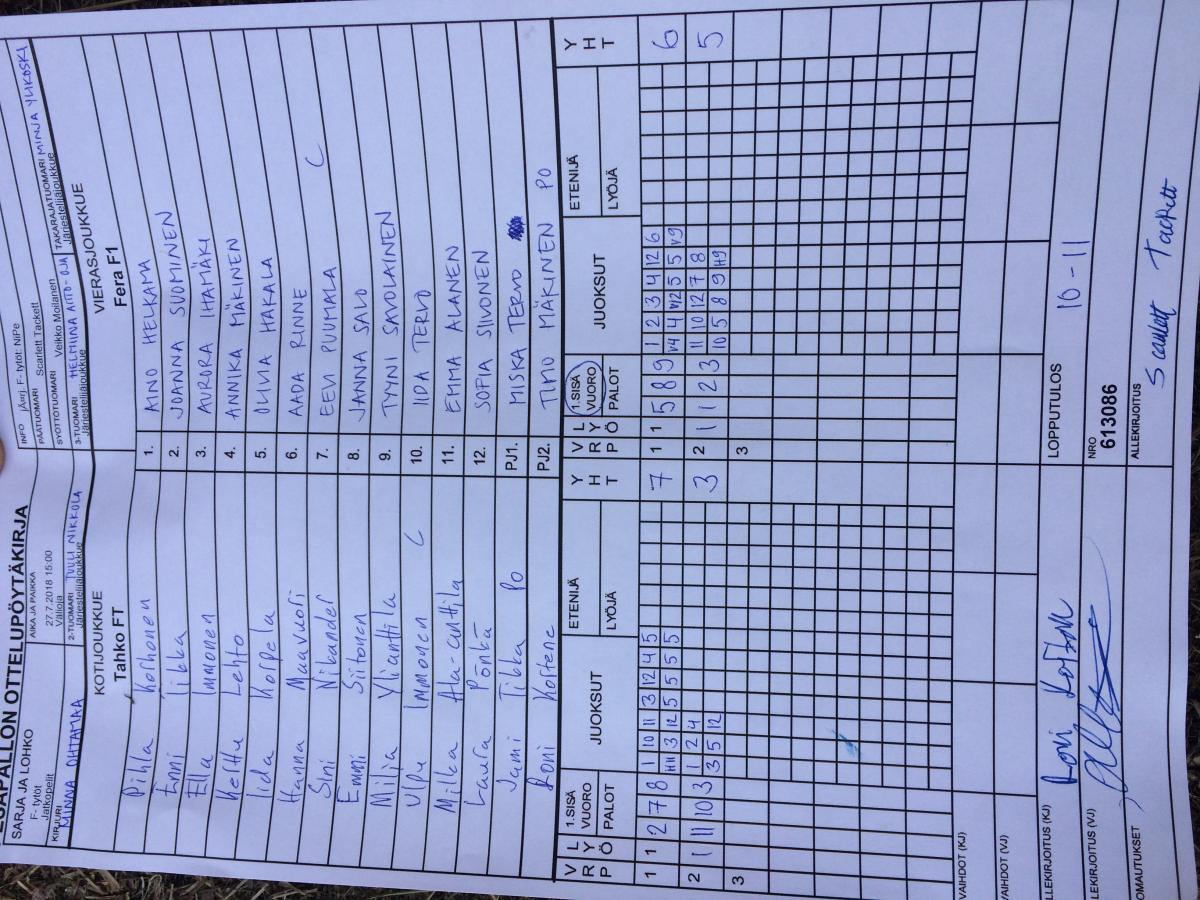 PESÄPALLON OTTELUPÖYTÄKIRJA
SARJA JA LOHKO
F- tytöt
Jatkopelit
AIKA JA PAIKKA
27.7.2018 15:00
INFO
F- tytöt: NiPe
PÄÄTUOMARI Scarlett Tackett
SYÖTTÖTUOMARI Veikko Moilanen
KIRJURI MINNA OHTAMAA
2-TUOMARI TUULI NIKKOLA
Järjestelijäjoukkue
3-TUOMARI HELMIINA AHTO-OJA
Järjestelijäjoukkue
TAKARAJATUOMARI MINJA YLIKOSKI
Järjestelijäjoukkue
KOTIJOUKKUE
Tahko FT
VIERASJOUKKUE
Fera F1
Pihla Korhonen 1. AINO HELKAMA
Enni Iikka 2. JOANNA SUOMINEN
Ella Immonen 3. AURORA IHAMÄKI
Kerttu Lehto 4. ANNIKA MÄKINEN
Iida Korpela 5. OLIVIA HAKALA
Hanna Maavuori 6. AADA RINNE
Sini Nikander 7. EEVI PUUMALA C
Emmi Siitonen 8. JANNA SALO
Milja Yliantila 9. TYYNI SAVOLAINEN
Ulpu Immonen C 10. IIDA TERVO
Milka Ala-anttila 11. EMMA ALANEN
Laura Pönkä 12. SOFIA SIIVONEN
Jami Tikka PO PJ1. MISKA TERVO
Roni Kostene PJ2. TIMO MÄKINEN PO
VRP LYÖ 1.SISÄ VUORO PALOT JUOKSUT ETENIJÄ LYÖJÄ YHT
VRP LYÖ 1.SISÄ VUORO PALOT JUOKSUT ETENIJÄ LYÖJÄ YHT
1 1 2 7 8 1 10 11 3 12 4 5 7
H11 3 12 5 5 5 5
1 1 5 8 9 1 2 3 4 12 6 6
V4 4 V12 5 5 V9
2 1 11 10 3 1 2 4 3
3 5 12
2 1 1 2 3 11 10 12 7 8 5
10 5 8 9 H9
3
3
VAIHDOT (KJ)
VAIHDOT (VJ)
ALLEKIRJOITUS (KJ)
LOPPUTULOS 10-11
ALLEKIRJOITUS (VJ)
NRO 613086
HUOMAUTUKSET
ALLEKIRJOITUS Scarlett Tackett